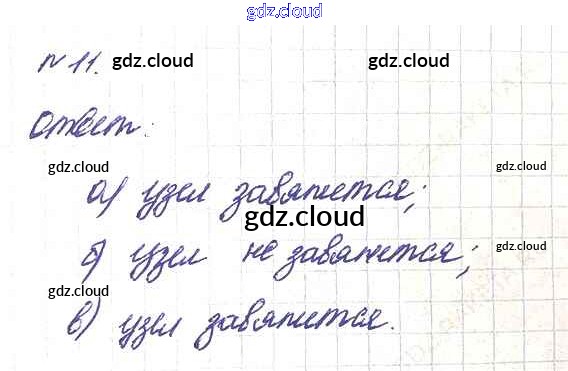 gdz.cloud
№ 11. gdz.cloud gdz.cloud
Ответ:
gdz.cloud gdz.cloud
а) узел завяжется;
gdz.cloud
б) узел не завяжется;
gdz.cloud gdz.cloud
в) узел завяжется.